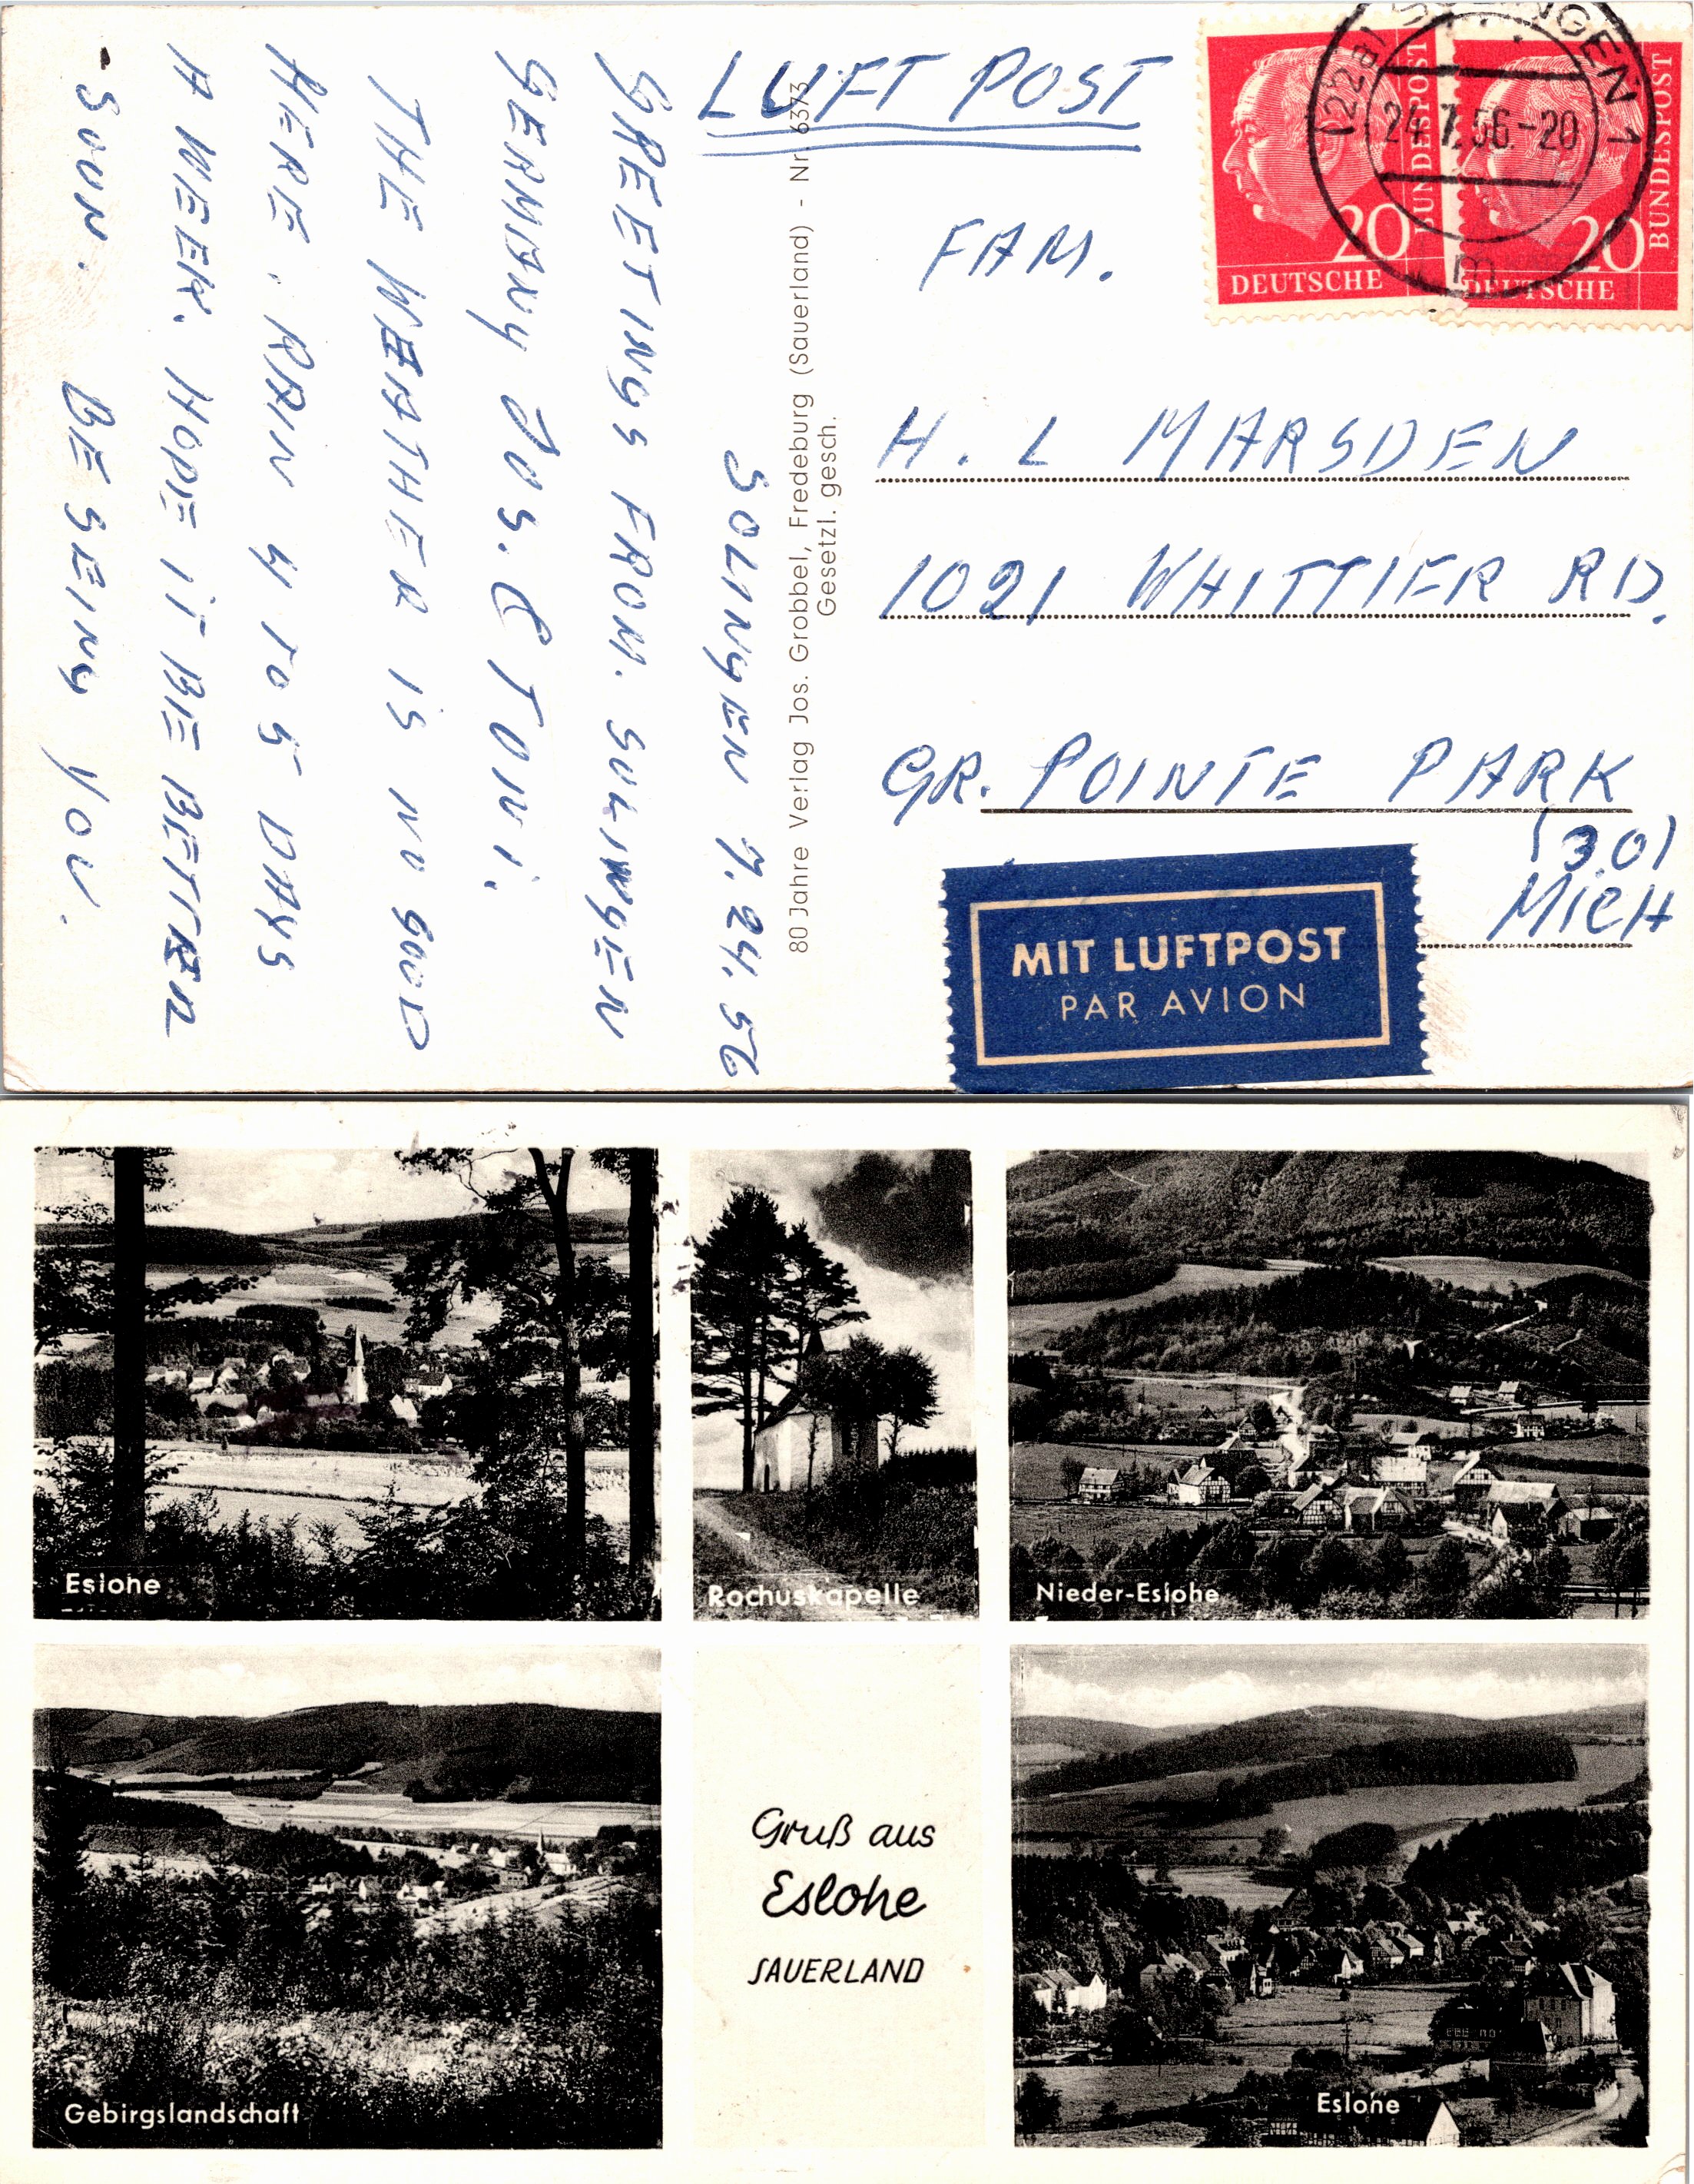 LUFT POST
FAM.
H. L MARSDEN
1021 WHITTIER RD.
GR. POINTE PARK
(30)
MICH
(22a) SOLINGEN 1
24.7.56.-20
m
20
DEUTSCHE
BUNDESPOST
20
DEUTSCHE
BUNDESPOST
MIT LUFTPOST
PAR AVION
80 Jahre Verlag Jos. Grobbel, Fredeburg (Sauerland) - Nr. 6373
Gesetzl. gesch.
SOLINGEN 7.24.56
GREETINGS FROM. SOLINGEN
GERMANY JOS. & TONI.
THE WEATHER IS NO GOOD
HERE. RAIN 4 TO 5 DAYS
A WEEK. HOPE IT BIE BETTER
- SOON. BESEING YOU.
Eslohe
Rochuskapelle
Nieder-Eslohe
Gebirgslandschaft
Gruß aus
Eslohe
SAUERLAND
Eslohe